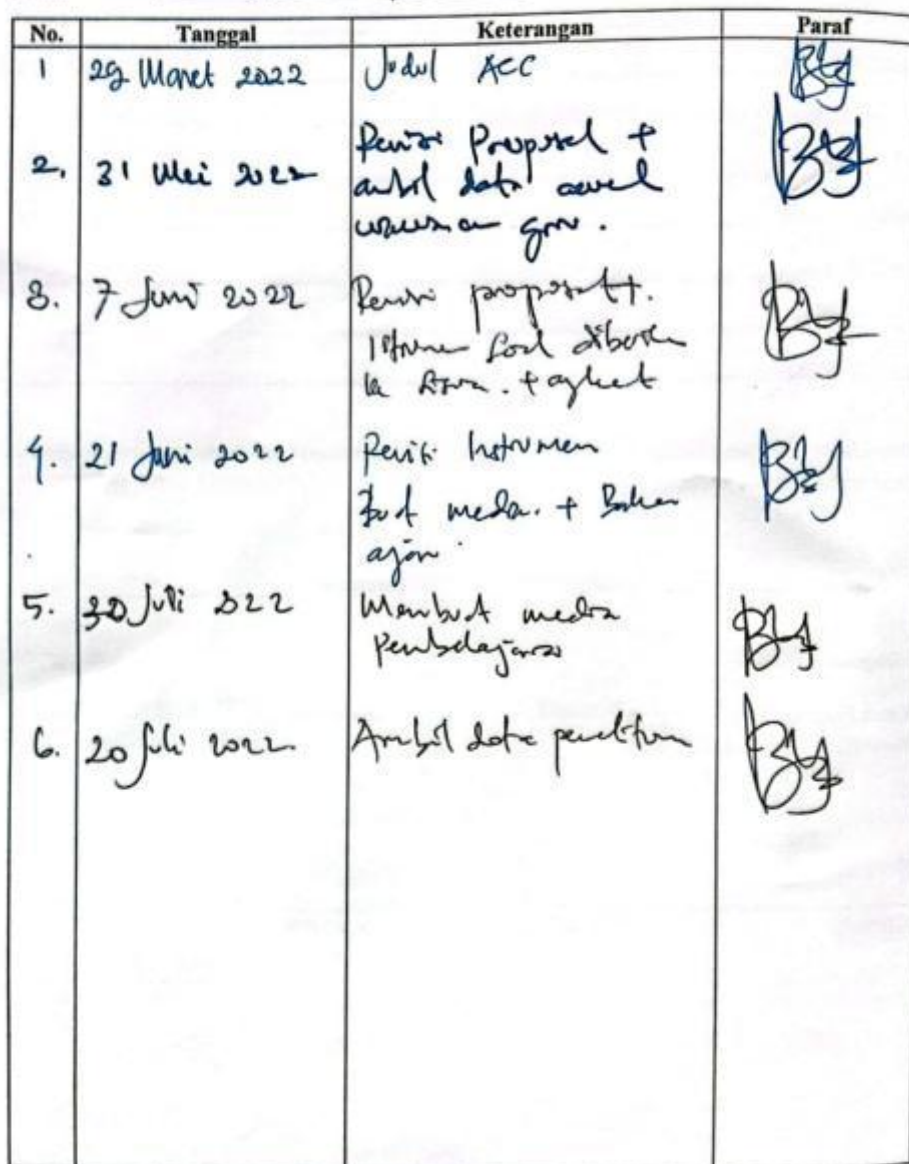 No. Tanggal Keterangan Paraf
1 29 Maret 2022 Judul ACC
2. 31 Mei 2022 Revisi Proposal +
ambil data awal
wawancara guru.
3. 7 Juni 2022 Revisi proposal +.
soal
+ angket
4. 21 Juni 2022 Revisi Instrumen
media. + Bahan
ajar
5. Juli 2022 Membuat media
Pembelajaran
6. 20 Juli 2022. Ambil data penelitian